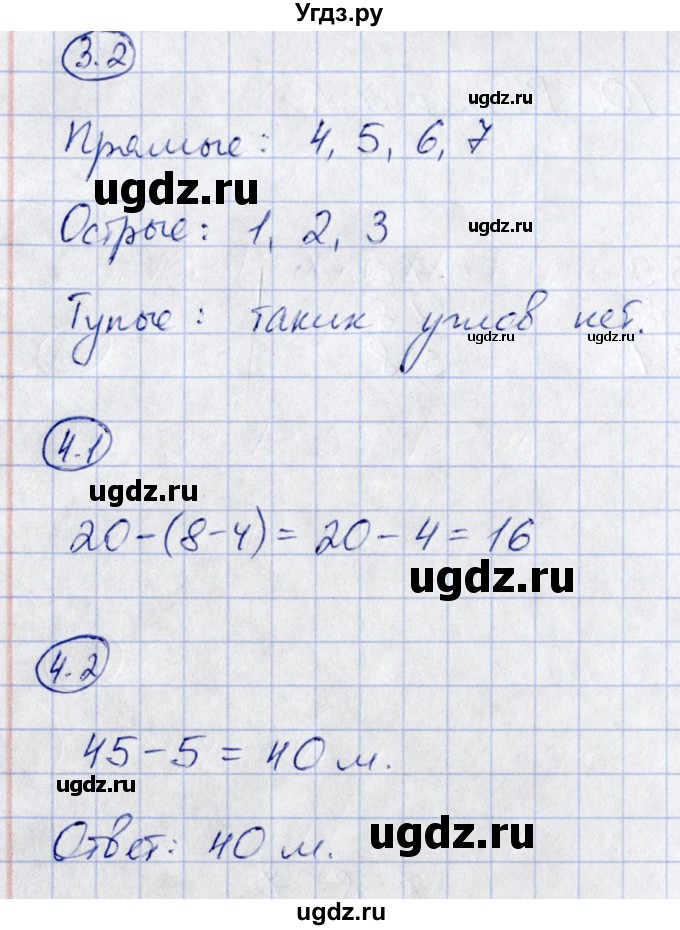 Угдз.ру
3.2
ugdz.ru
Прямые: 4, 5, 6, 7
ugdz.ru
Острые: 1, 2, 3
ugdz.ru
Тупые: таких углов нет.
ugdz.ru ugdz.ru
4.1
ugdz.ru
20-(8-4)=20-4=16
ugdz.ru
4.2
45-5=40 м.
ugdz.ru
ugdz.ru
Ответ: 40 м.
ugdz.ru